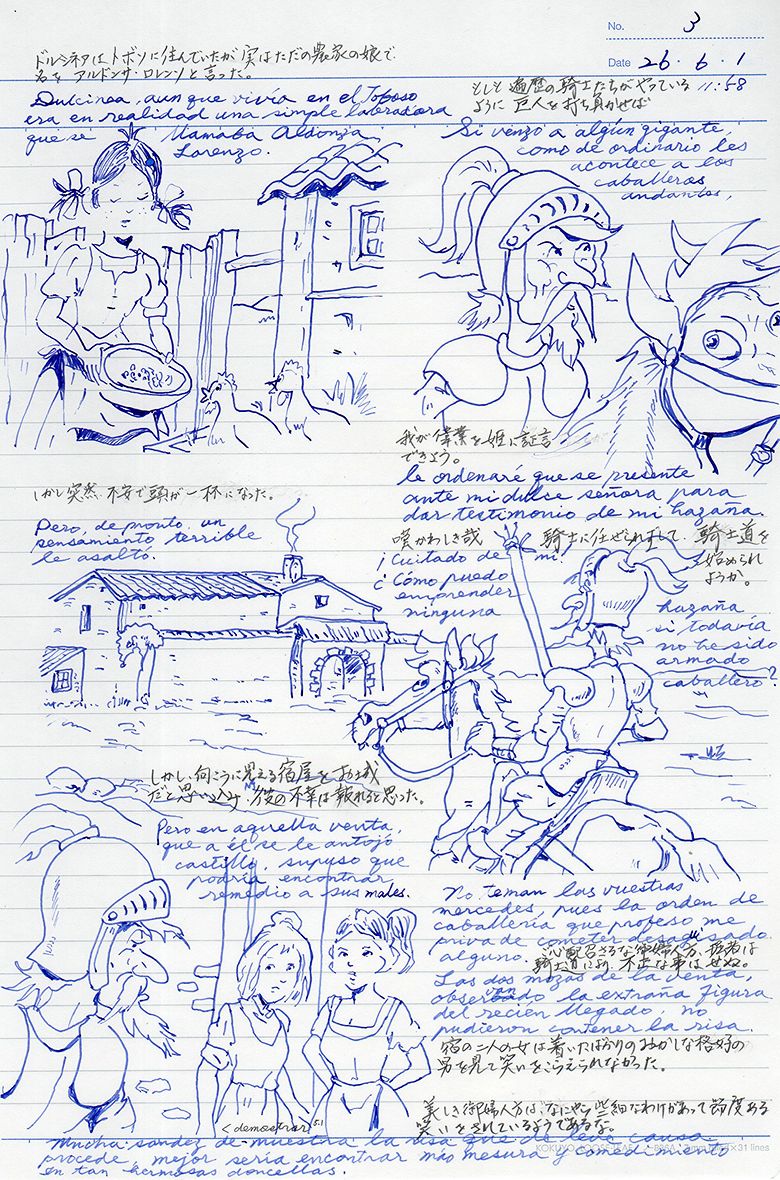 No. 3
Date 26・6・1
11:58
ドルシネアはトボソに住んでいたが実はただの農家の娘で
名をアルドンサ・ロレンソと言った。
Dulcinea, aunque vivía en el Toboso
era en realidad una simple labradora
que se llamaba Aldonza
Lorenzo.
もしも遍歴の騎士たちがやっている
ように巨人を打ち負かせば
Si venzo a algún gigante,
como de ordinario les
acontece a los
caballeros
andantes,
我が偉業を姫に証言
できよう。
le ordenaré que se presente
ante mi dulce señora para
dar testimonio de mi hazaña.
しかし突然、不安で頭が一杯になった。
Pero, de pronto, un
pensamiento terrible
le asaltó.
嘆かわしき哉 騎士に任ぜられまして、騎士道を
始められ
ようか。
¡Cuitado de mí!
¿Cómo puedo
emprender
ninguna
hazaña
si todavía
no he sido
armado
caballero?
しかし、向こうに見える宿屋をお城
だと思い込み、彼の不幸は報れると思った。
Pero en aquella venta,
que a él se le antojó
castillo, supuso que
podría encontrar
remedio a sus males.
No teman las vuestras
mercedes, pues la orden de
caballería que profeso me
priva de cometer desaguisado
alguno.
心配召さるな御婦人方、拙者は
騎士道により、不正な事はせぬ。
Las dos mozas de la venta,
observando la extraña figura
del recién llegado, no
pudieron contener la risa.
宿の二人の女は着いたばかりのおかしな格好の
男を見て笑いをこらえられなかった。
美しき御婦人方は、なにやら些細なわけがあって節度ある
笑いをされているようであるな。
<demostrar
Mucha sandez demuestra la risa que de leve causa
procede, mejor sería encontrar más mesura y comedimiento
en tan hermosas doncellas.